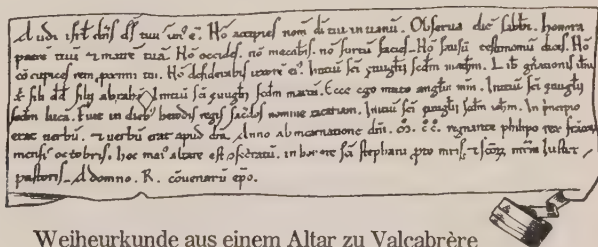 Audi isrł dn̄s d̄s tuus ē. Nō accipies nom̄ dī tui in uanū. Obserua diē sabbi. honora
patrē tuū & matrē tuā. Nō occides. nō mecabis. nō furtū facies. Nō falsū testimoniū dices. Nō
cōcupisces rem primi tui. Nō desiderabis uxorē ei'. Iniciū sc̄i euuglii scdm mathm. Lib gn̄ationis ihū
xp̄i filii dd filii abrahā. Iniciū sc̄i euuglii scdm marcū. Ecce ego mitto anglū mm̄. Iniciū sc̄i euuglii
scdm lucā. Fuit in dieb' herodis regis sacdos nomine zacarias. Iniciū sc̄i euuglii scdm iohm. In p̄ncipio
erat uerbū. & uerbū erat apud dm̄. Anno ab incarnatione dn̄i. M. c̄c̄. regnante philipo rege
mensis octobris. hoc mai' altare est ɔsecratū. in honore sc̄i stephani pro mris. & scōr mrm iusti &
pastoris. A domno. R. cōuenarū epō.
Weiheurkunde aus einem Altar zu Valcabrère